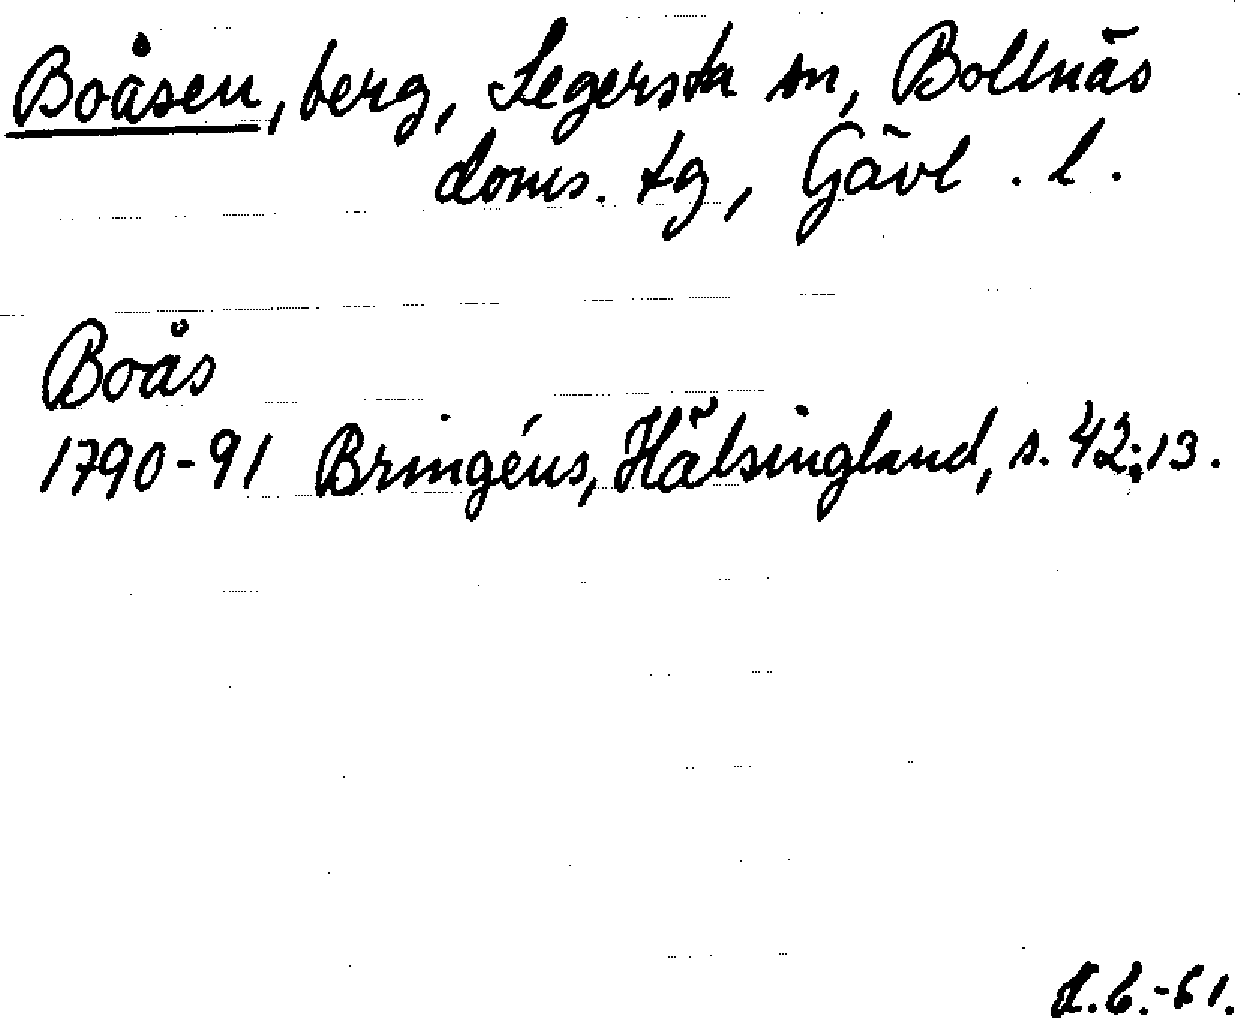 Boåsen, berg, Segersta sn, Bollnäs
doms. tg, Gävl. l.
Boås
1790-91 Bringéus, Hälsingland, s. 42:13.